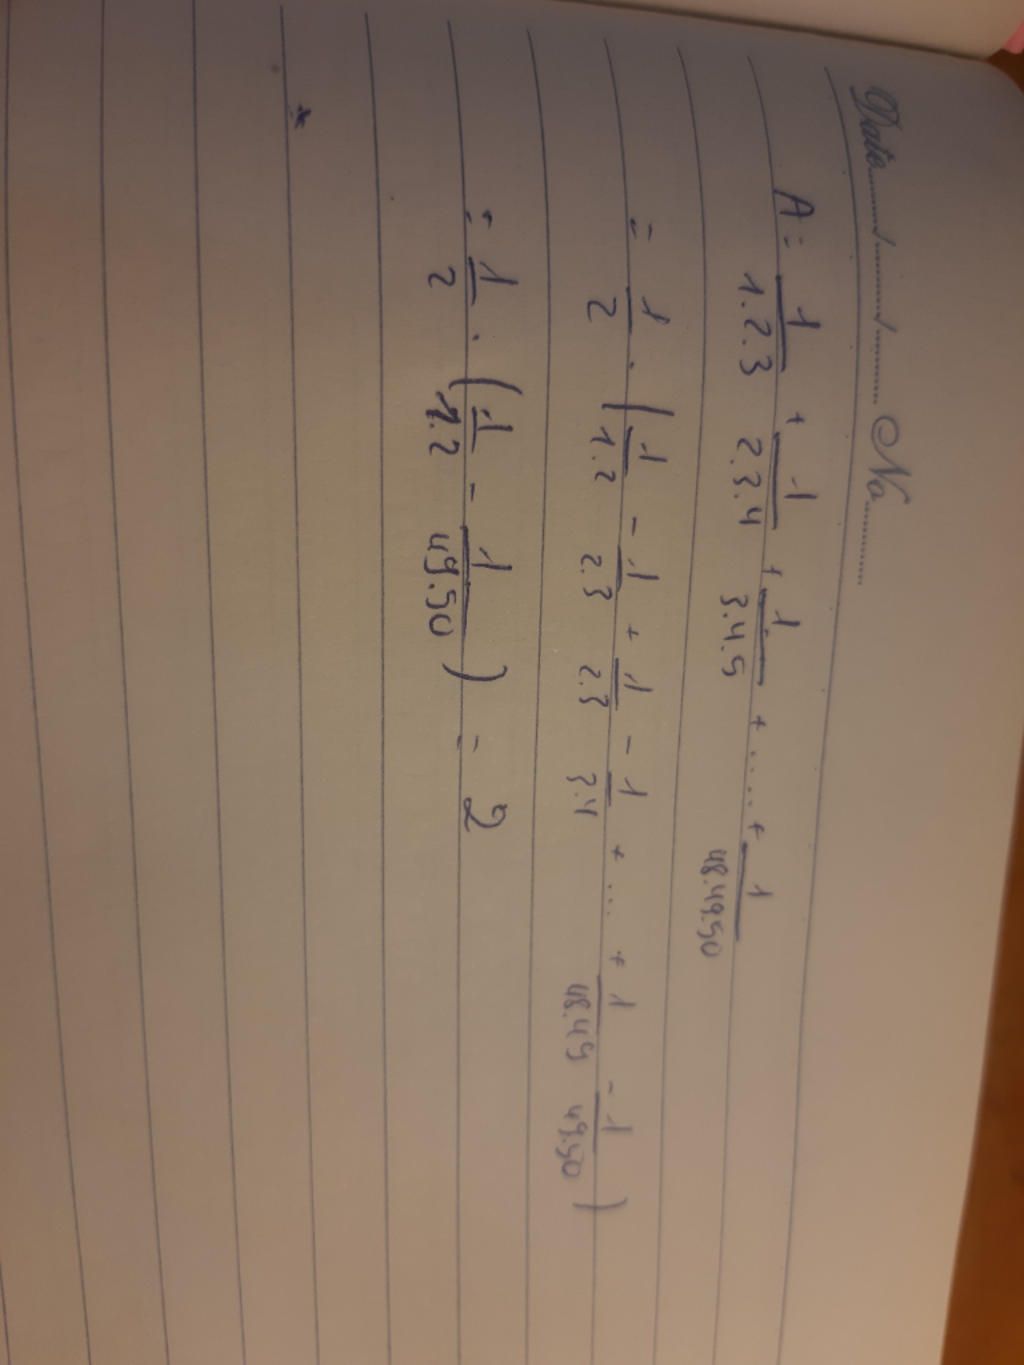 Date......./......./....... No..........
A = 1/1.2.3 + 1/2.3.4 + 1/3.4.5 + ..... + 1/48.49.50
= 1/2 . (1/1.2 - 1/2.3 + 1/2.3 - 1/3.4 + ... + 1/48.49 - 1/49.50)
= 1/2 . (1/1.2 - 1/49.50) = 2